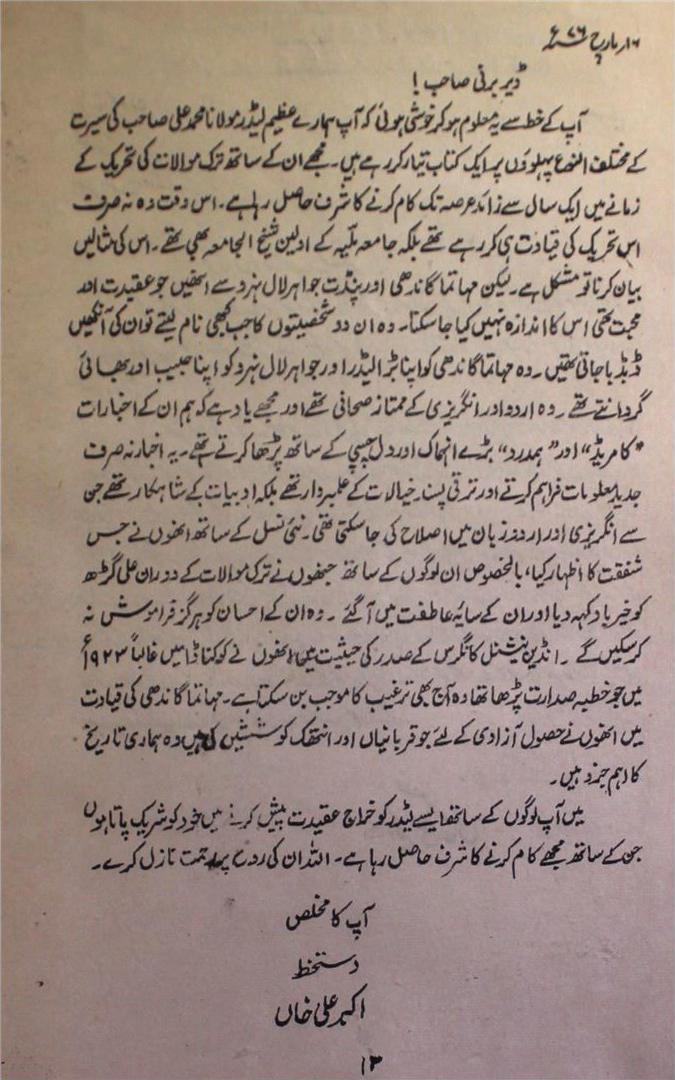 ۱۶؍مارچ ۷۶ء
ڈیر برنی صاحب !
آپ کے خط سے یہ معلوم ہو کر خوشی ہوئی کہ آپ ہمارے عظیم لیڈر مولانا محمد علی صاحب کی سیرت
کے مختلف النوع پہلوؤں پر ایک کتاب تیار کر رہے ہیں۔ مجھے ان کے ساتھ ترک موالات کی تحریک کے
زمانے میں ایک سال سے زائد عرصہ تک کام کرنے کا شرف حاصل رہا ہے۔ اس وقت وہ نہ صرف
اس تحریک کی قیادت ہی کر رہے تھے بلکہ جامعہ ملیہ کے اولین شیخ الجامعہ بھی تھے۔ اس کی مثالیں
بیان کرنا تو مشکل ہے۔ لیکن مہاتما گاندھی اور پنڈت جواہر لال نہرو سے انھیں جو عقیدت اور
محبت تھی اس کا اندازہ نہیں کیا جا سکتا۔ وہ ان دو شخصیتوں کا جب کبھی نام لیتے تو ان کی آنکھیں
ڈبڈبا جاتی تھیں۔ وہ مہاتما گاندھی کو اپنا بڑا لیڈر اور جواہر لال نہرو کو اپنا حبیب اور بھائی
گردانتے تھے۔ وہ اردو اور انگریزی کے ممتاز صحافی تھے اور مجھے یاد ہے کہ ہم ان کے اخبارات
"کامریڈ" اور "ہمدرد" بڑے انہماک اور دل چسپی کے ساتھ پڑھا کرتے تھے۔ یہ اخبار نہ صرف
جدید معلومات فراہم کرتے اور ترقی پسند خیالات کے علمبردار تھے بلکہ ادبیات کے شاہکار تھے جن
سے انگریزی اور اردو زبان میں اصلاح کی جا سکتی تھی۔ نئی نسل کے ساتھ انھوں نے جس
شفقت کا اظہار کیا، بالخصوص ان لوگوں کے ساتھ جنھوں نے ترک موالات کے دوران علی گڑھ
کو خیر باد کہہ دیا اور ان کے سایہ عاطفت میں آ گئے۔ وہ ان کے احسان کو ہرگز فراموش نہ
کر سکیں گے۔ انڈین نیشنل کانگرس کے صدر کی حیثیت میں انھوں نے کوکناڈا میں غالباً ۱۹۲۳ء
میں جو خطبہ صدارت پڑھا تھا وہ آج بھی ترغیب کا موجب بن سکتا ہے۔ مہاتما گاندھی کی قیادت
میں انھوں نے حصول آزادی کے لئے جو قربانیاں اور انتھک کوششیں کی ہیں وہ ہماری تاریخ
کا اہم جزو ہیں۔
میں آپ لوگوں کے ساتھ ایسے لیڈر کو خراج عقیدت پیش کرنے میں خود کو شریک پاتا ہوں
جن کے ساتھ مجھے کام کرنے کا شرف حاصل رہا ہے۔ اللہ ان کی روح پر رحمت نازل کرے۔
آپ کا مخلص
دستخط
اکبر علی خاں
۱۳